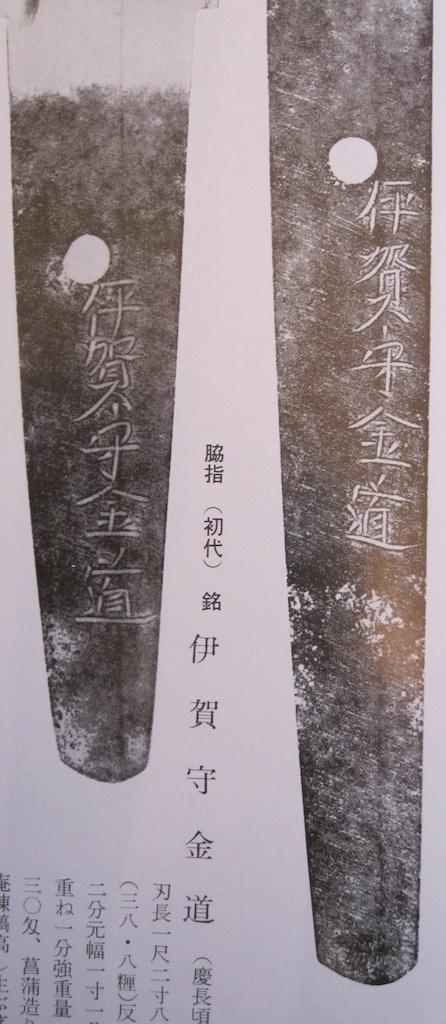 伊賀守金道
脇指 (初代) 銘 伊賀守金道 (慶長頃
伊賀守金道
刃長一尺二寸八
(三八・八糎)反
二分元幅一寸一
重ね一分強重量
三〇匁、菖蒲造り
庵棟鎬高